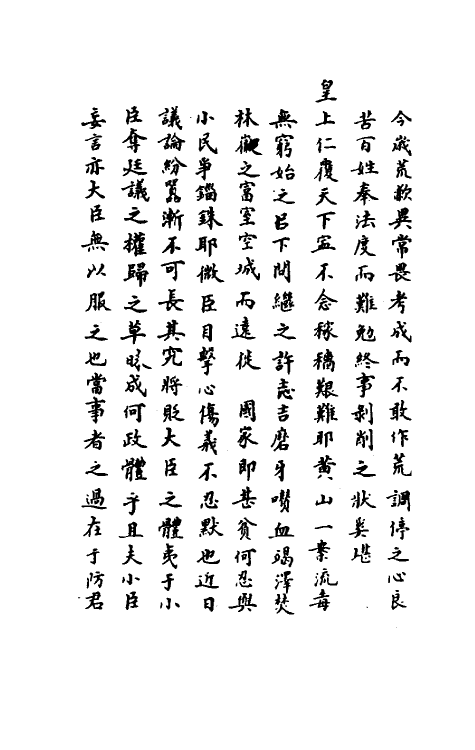 今歲荒歉異常畏考成而不敢作荒調停之心良
苦百姓奉法度而難勉終事剝削之狀奚堪
皇上仁覆天下寧不念稼穡艱難耶黄山一案流毒
無窮始之呂下問繼之許志吉磨牙嚼血竭澤焚
林儼之富室空城而遠徙　國家即甚貧何忍與
小民爭錙銖耶微臣目擊心傷義不忍默也近日
議論紛囂漸不可長其究將貶大臣之體夷于小
臣奪廷議之權歸之草昧成何政體乎且夫小臣
妄言亦大臣無以服之也當事者之過在于防君